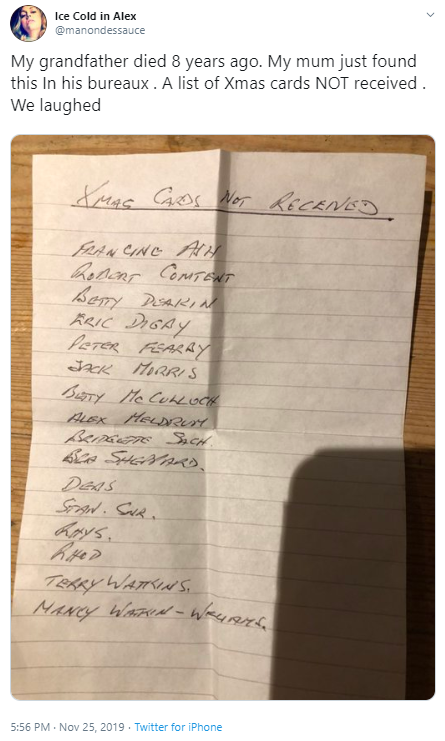 Ice Cold in Alex
@manondessauce
My grandfather died 8 years ago. My mum just found
this In his bureaux . A list of Xmas cards NOT received .
We laughed
XMAS CARDS NOT RECEIVED
FRANCINE ASH
ROBERT COMTENT
BETTY DEAKIN
ERIC DIGBY
PETER FEARBY
JACK MORRIS
BETTY McCULLOCH
ALEX MELDRUM
BRIDGETTE SACH.
BOB SHEPPARD.
DEAS
STAN. SNR.
RHYS.
RHOD
TERRY WATKINS.
WATKIN - WILLIAMS.
5:56 PM · Nov 25, 2019 · Twitter for iPhone